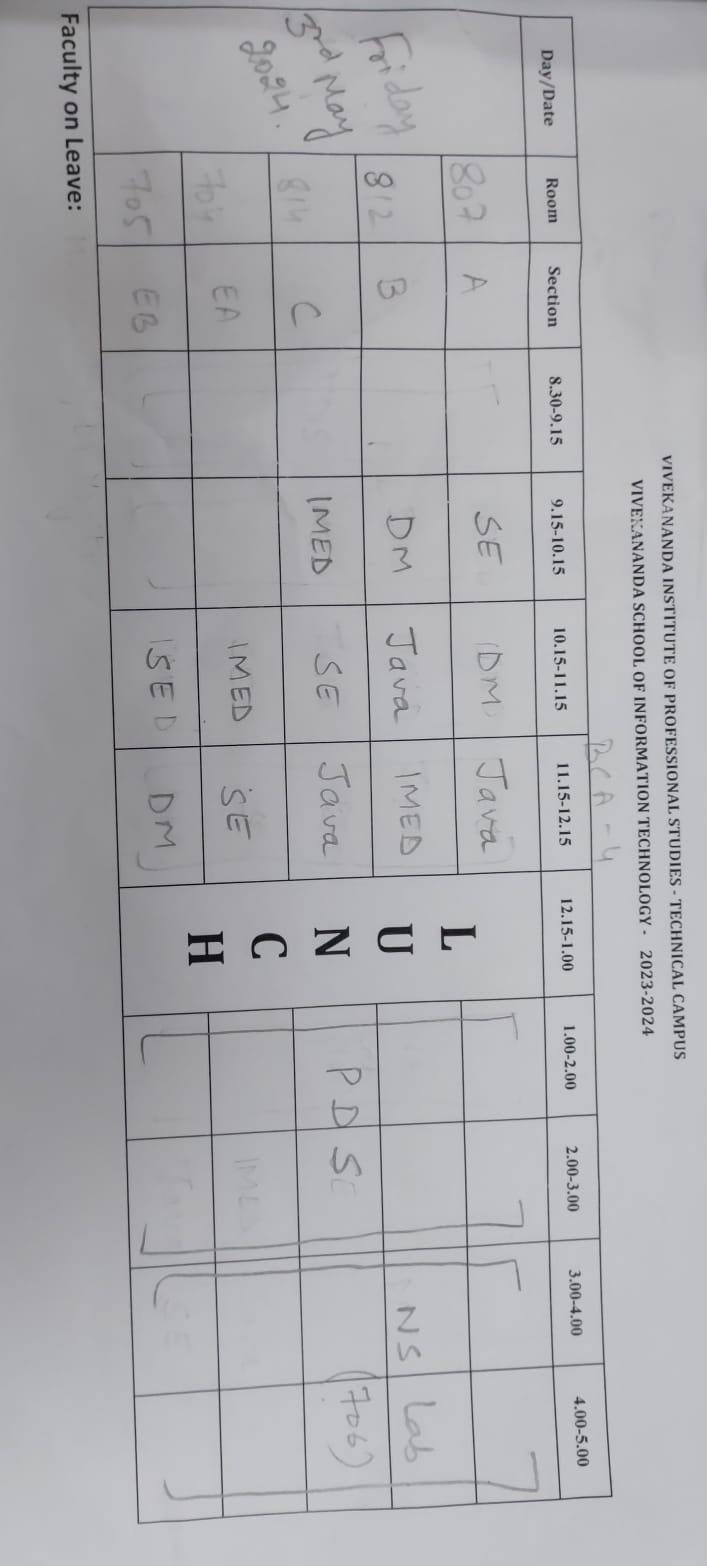 VIVEKANANDA INSTITUTE OF PROFESSIONAL STUDIES - TECHNICAL CAMPUS
VIVEKANANDA SCHOOL OF INFORMATION TECHNOLOGY - 2023-2024
BCA-4
Day/Date Room Section 8.30-9.15 9.15-10.15 10.15-11.15 11.15-12.15 12.15-1.00 1.00-2.00 2.00-3.00 3.00-4.00 4.00-5.00
Friday
3rd May
2024.
807 A SE DM Java L
812 B DM Java IMED U NS Lab
814 C IMED SE Java N PDS (706)
704 EA IMED SE C
705 EB SE DM H
Faculty on Leave: